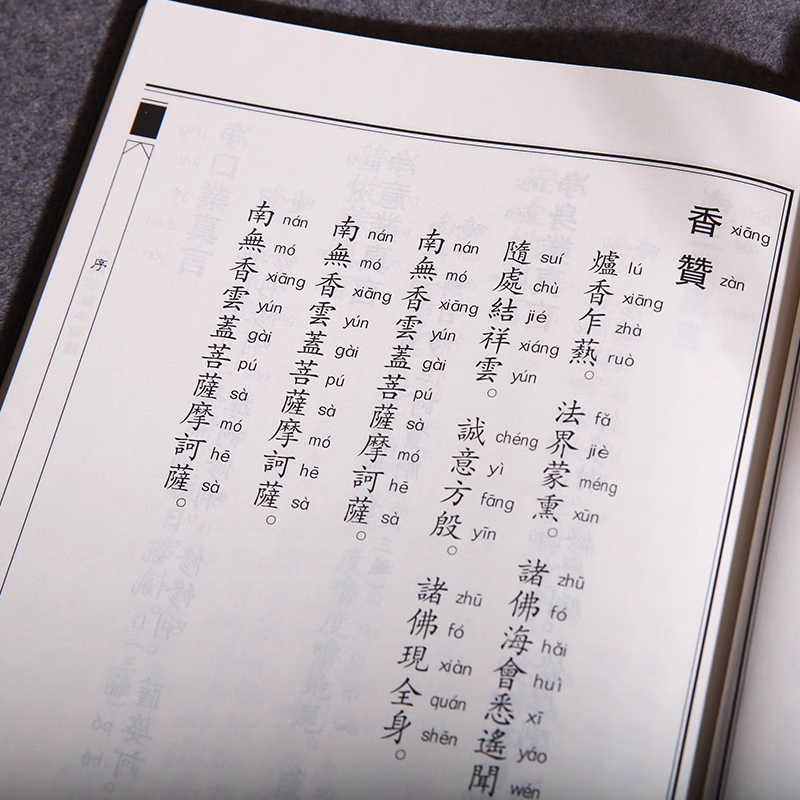 香讚
xiāng zàn
爐香乍爇。法界蒙熏。諸佛海會悉遙聞
lú xiāng zhà ruò fǎ jiè méng xūn zhū fó hǎi huì xī yáo wén
隨處結祥雲。誠意方殷。諸佛現全身。
suí chù jié xiáng yún chéng yì fāng yīn zhū fó xiàn quán shēn
南無香雲蓋菩薩摩訶薩。
nán mó xiāng yún gài pú sà mó hē sà
南無香雲蓋菩薩摩訶薩。
nán mó xiāng yún gài pú sà mó hē sà
南無香雲蓋菩薩摩訶薩。
nán mó xiāng yún gài pú sà mó hē sà
序